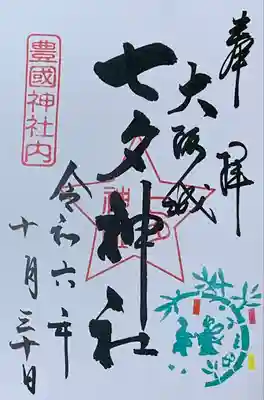 奉拝
大阪城
七夕神社
豊國神社内
令和六年
十月三十日